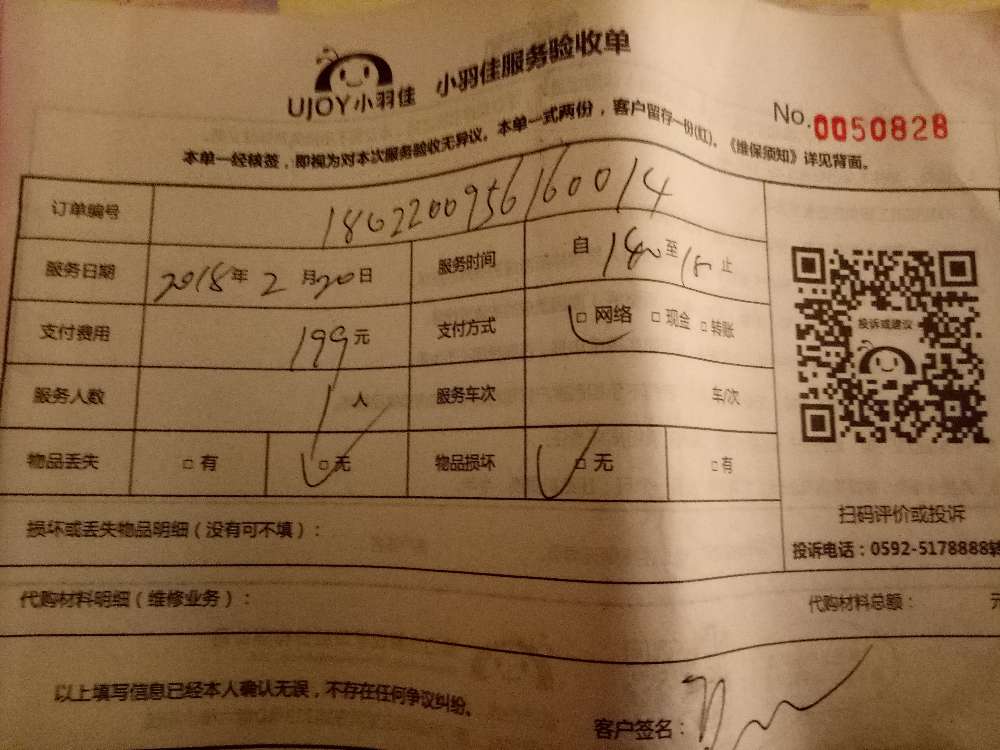 UJOY小羽佳 小羽佳服务验收单
No.0050828
本单一经核签，即视为对本次服务验收无异议。本单一式两份，客户留存一份(红)。《维保须知》详见背面。
订单编号 1802200956160014
服务日期 2018年2月20日 服务时间 自 14 至 18 止
支付费用 199元 支付方式 □网络 □现金 □转账
服务人数 1人 服务车次 车/次
物品丢失 □有 □无 物品损坏 □无 □有
投诉或建议
扫码评价或投诉
投诉电话：0592-5178888转
损坏或丢失物品明细（没有可不填）：
代购材料明细（维修业务）： 代购材料总额： 元
以上填写信息已经本人确认无误，不存在任何争议纠纷。
客户签名：